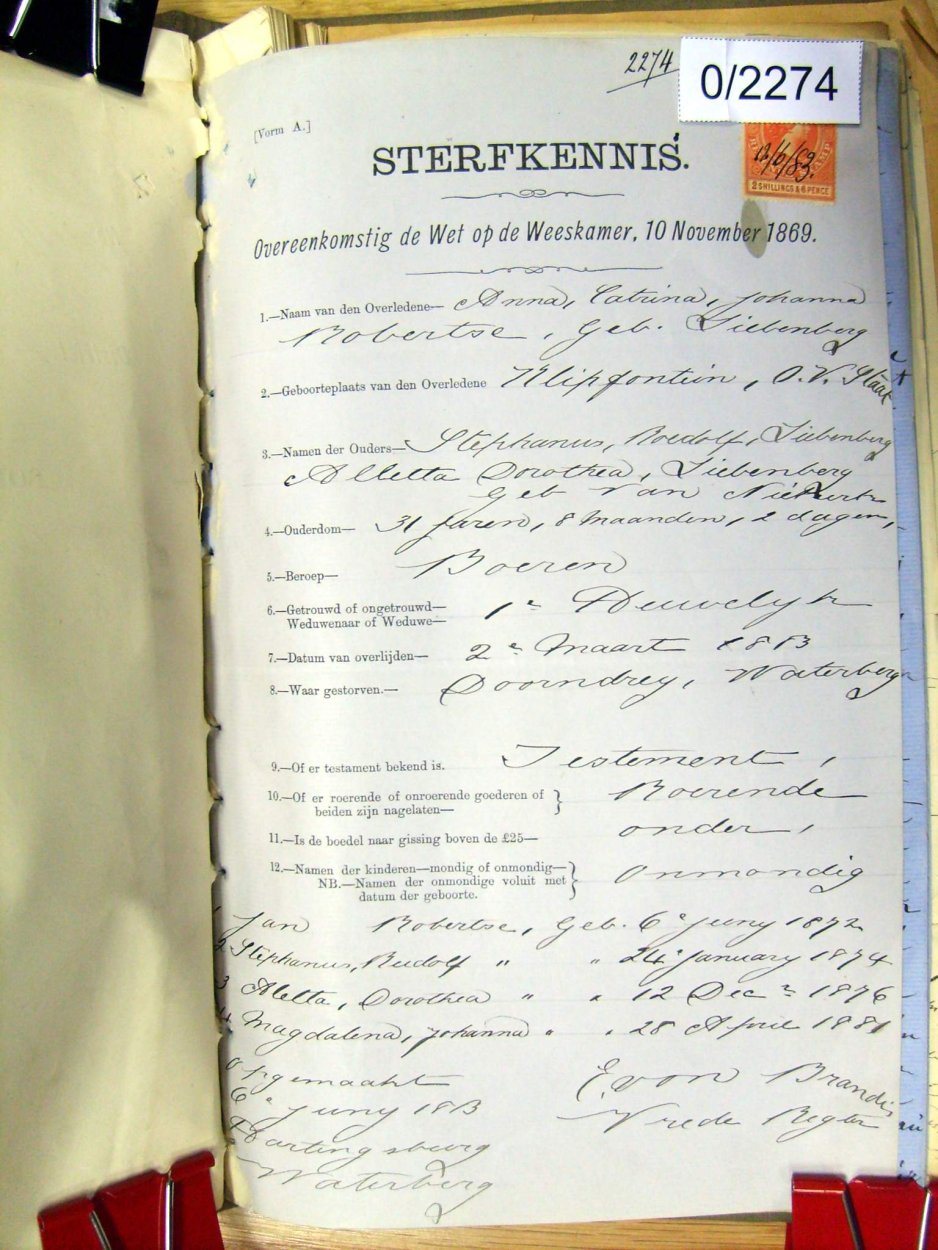 2274
0/2274
[Vorm A.]
STERFKENNIS.
12/6/83.
2 SHILLINGS & 6 PENCE
Overeenkomstig de Wet op de Weeskamer, 10 November 1869.
1.—Naam van den Overledene— Anna, Catrina, Johanna
Robertse, Geb. Liebenberg
2.—Geboorteplaats van den Overledene Klipfontein, O.V. Staat
3.—Namen der Ouders— Stephanus, Roedolf, Liebenberg
Alletta Dorothea, Liebenberg
Geb van Niekerk
4.—Ouderdom— 31 Jaren, 8 maanden, 2 dagen,
5.—Beroep— Boeren
6.—Getrouwd of ongetrouwd—
Weduwenaar of Weduwe— 1e Heuwelyk
7.—Datum van overlijden— 2e Maart 1883
8.—Waar gestorven.— Doorndrey, Waterberg
9.—Of er testament bekend is. Testement,
10.—Of er roerende of onroerende goederen of
beiden zijn nagelaten— } Roerende
11.—Is de boedel naar gissing boven de £25— onder,
12.—Namen der kinderen—mondig of onmondig—
NB.—Namen der onmondige voluit met } Onmondig
datum der geboorte.
1 Jan Robertse, Geb. 6e Juny 1872
2 Stephanus, Rudolf " " 24e January 1874
3 Aletta, Dorothea " " 12 Decr 1876
4 Magdalena, Johanna " " 28 April 1881
Opgemaakt
6e Juny 1883 E. von Brandis
Hartingsburg Vrede Regter
Waterberg